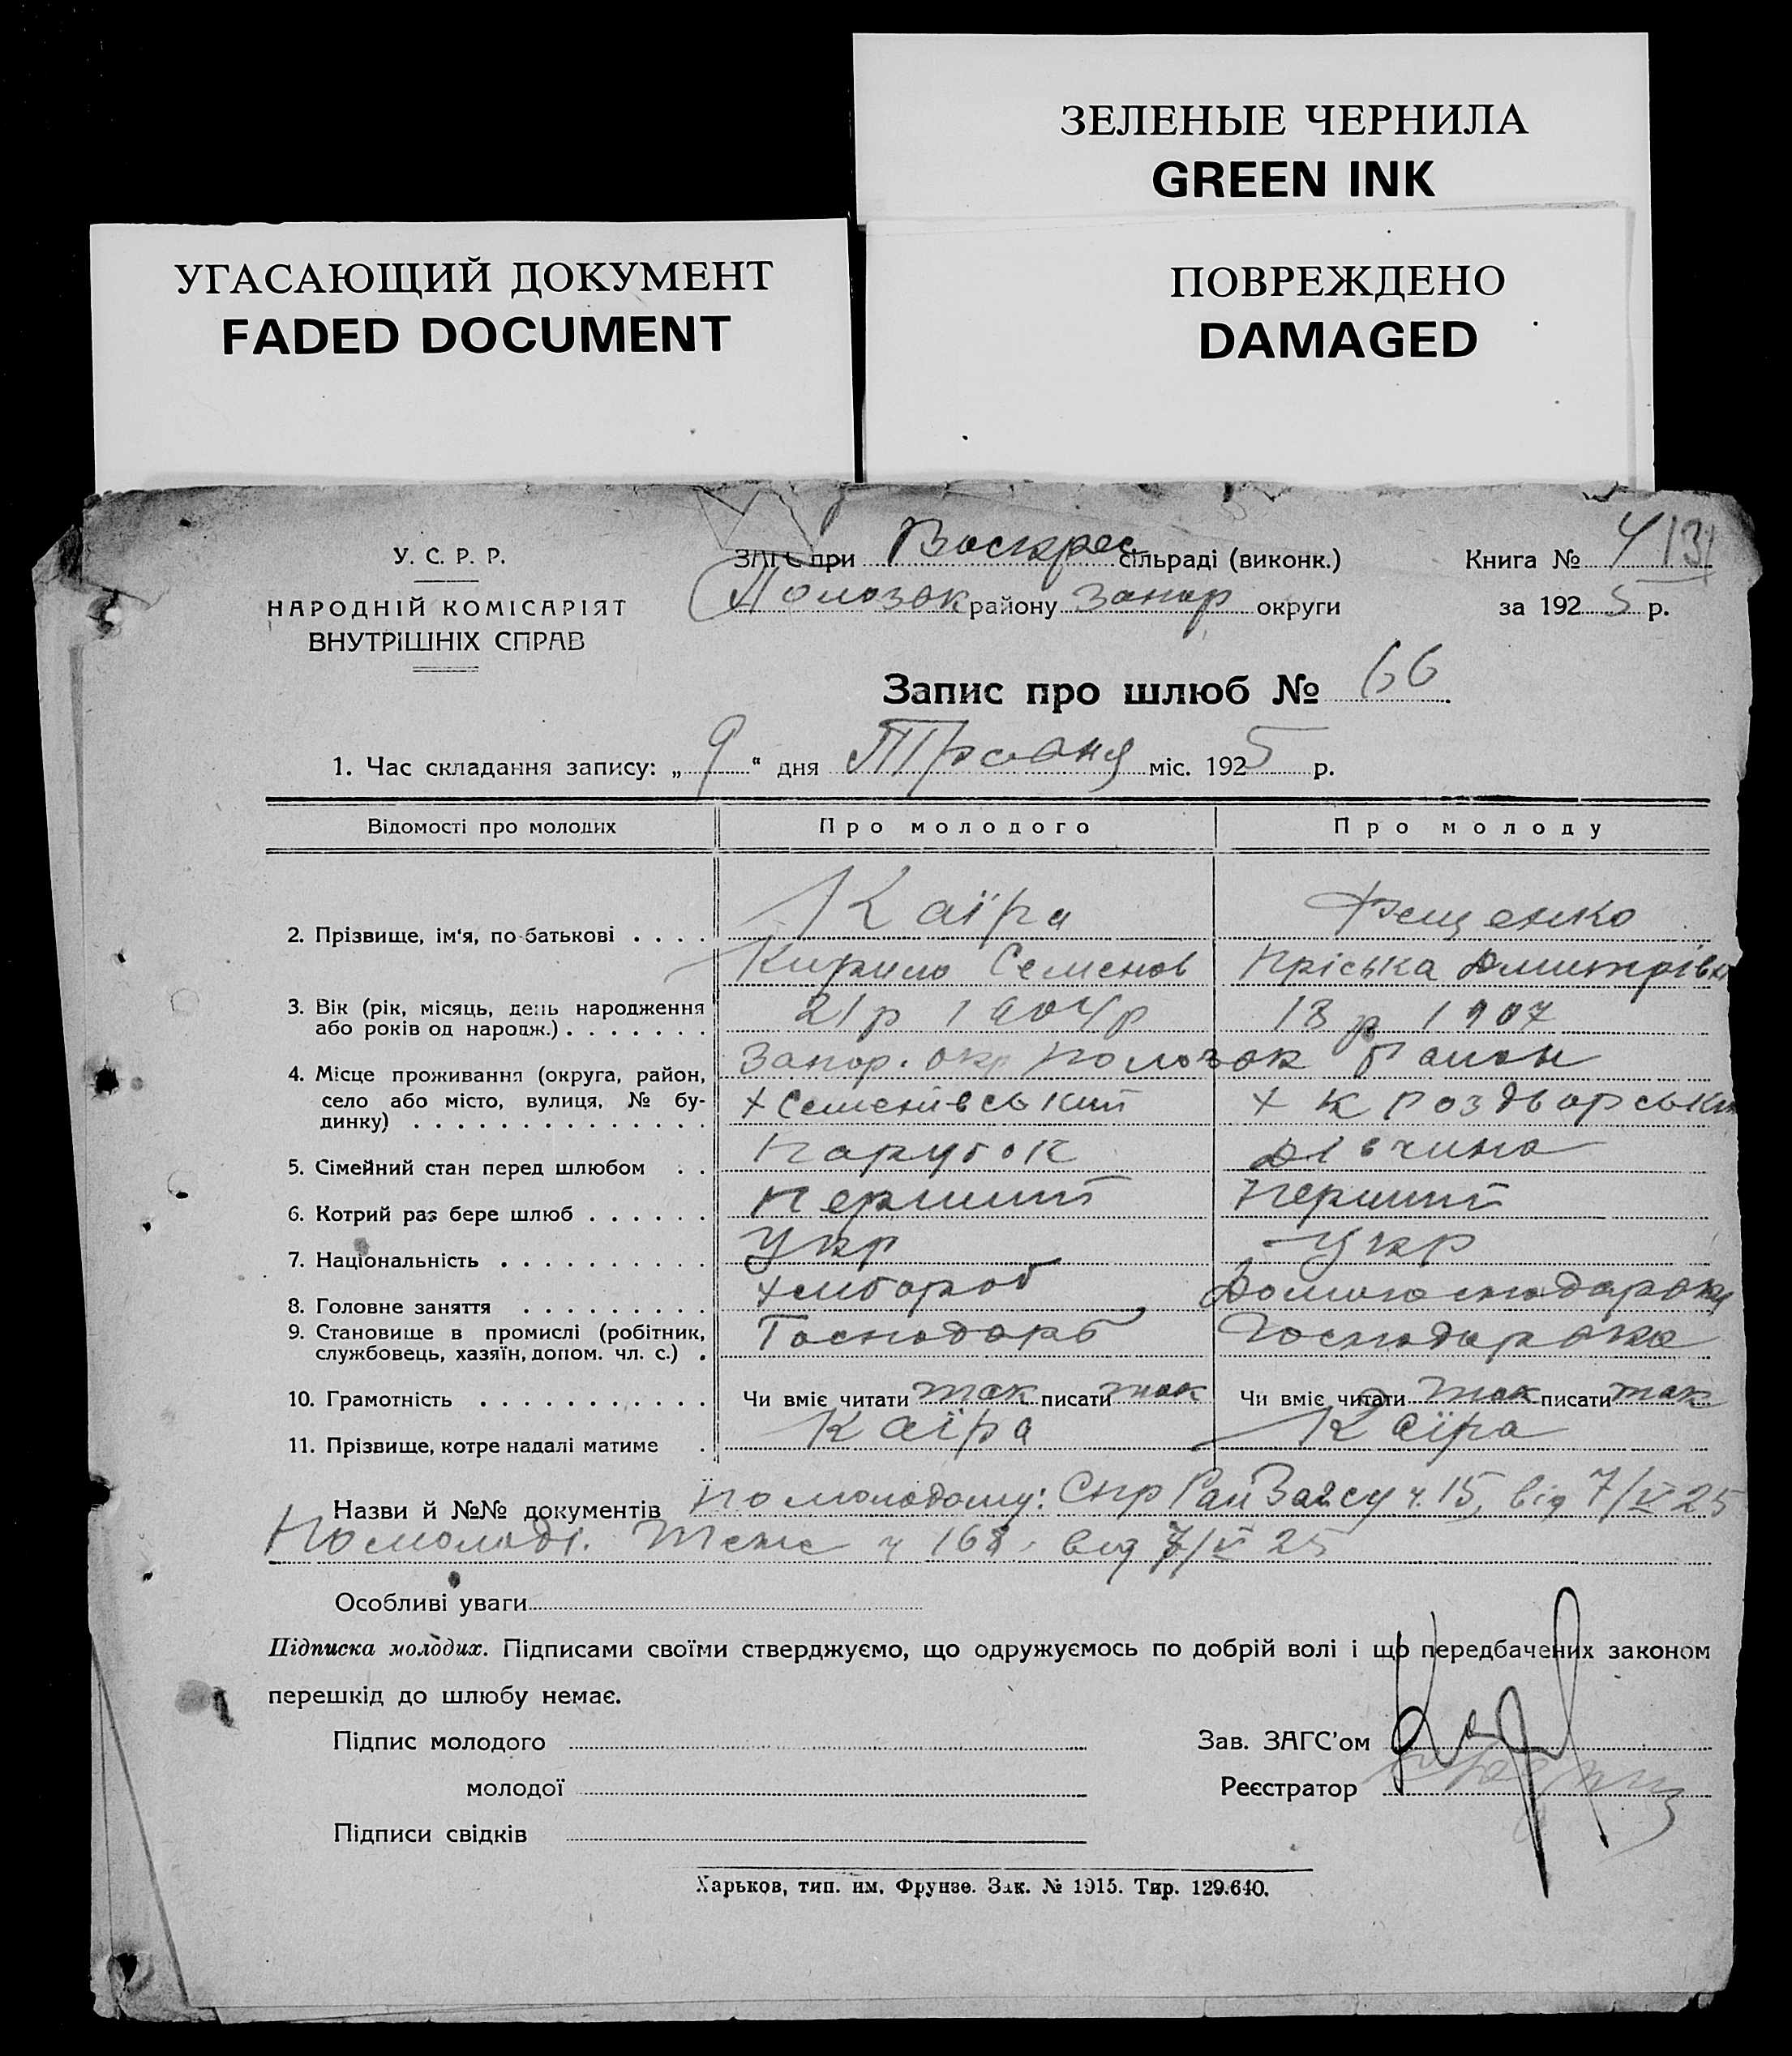 ЗЕЛЕНЫЕ ЧЕРНИЛА
GREEN INK
УГАСАЮЩИЙ ДОКУМЕНТ
FADED DOCUMENT
ПОВРЕЖДЕНО
DAMAGED
У. С. Р. Р.
НАРОДНІЙ КОМІСАРІЯТ
ВНУТРІШНІХ СПРАВ
ЗАГС при Воскрес сільраді (виконк.)
Полозьк району Запор округи
Книга №
за 1925 р.
Запис про шлюб № 66
1. Час складання запису: „9“ дня Травня міс. 1925 р.
Відомості про молодих Про молодого Про молоду
2. Прізвище, ім'я, по-батькові . . . . Каїра
Кирило Семенов Пріська Дмитрівн
3. Вік (рік, місяць, день народження або років од народж.) . . . . . . . 21 р 1904 р 18 р 1907
4. Місце проживання (округа, район, село або місто, вулиця, № будинку) . . . . . . . . . . . . . . Запор. окр Полозьк район
х Семенівський х
5. Сімейний стан перед шлюбом . . Парубок Дівчина
6. Котрий раз бере шлюб . . . . . . Перший Перший
7. Національність . . . . . . . . . . Укр Укр
8. Головне заняття . . . . . . . . . Хлибороб
9. Становище в промислі (робітник, службовець, хазяїн, допом. чл. с.) . Господарь Господарка
10. Грамотність . . . . . . . . . . . Чи вміє читати так писати так Чи вміє читати так писати так
11. Прізвище, котре надалі матиме . Каїра Каїра
Назви й №№ документів По молодому: Спр РайЗагсу ч. 15, від 7/V 25
По молоді. Теж ч 168, від 7/V 25
Особливі уваги
Підписка молодих. Підписами своїми стверджуємо, що одружуємось по добрій волі і що передбачених законом
перешкід до шлюбу немає.
Підпис молодого
молодої
Підписи свідків
Зав. ЗАГС'ом
Реєстратор
Харьков, тип. им. Фрунзе. Зак. № 1915. Тир. 129.640.